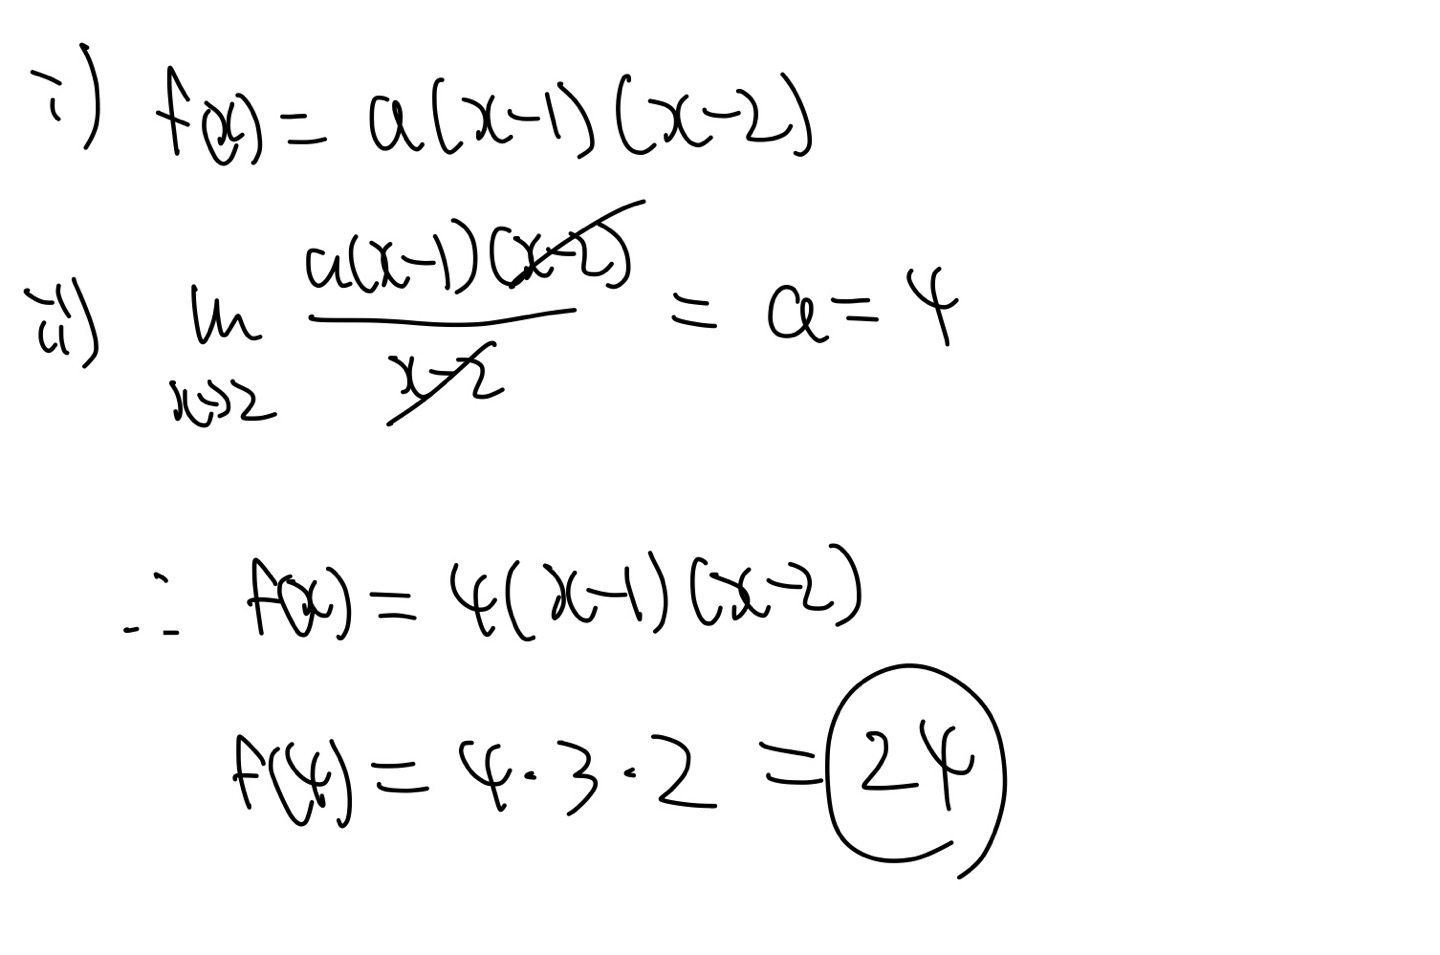 i) f(x) = a(x-1)(x-2)
ii) lim x→2 a(x-1)(x-2) / x-2 = a = 4
∴ f(x) = 4(x-1)(x-2)
f(4) = 4·3·2 = 24